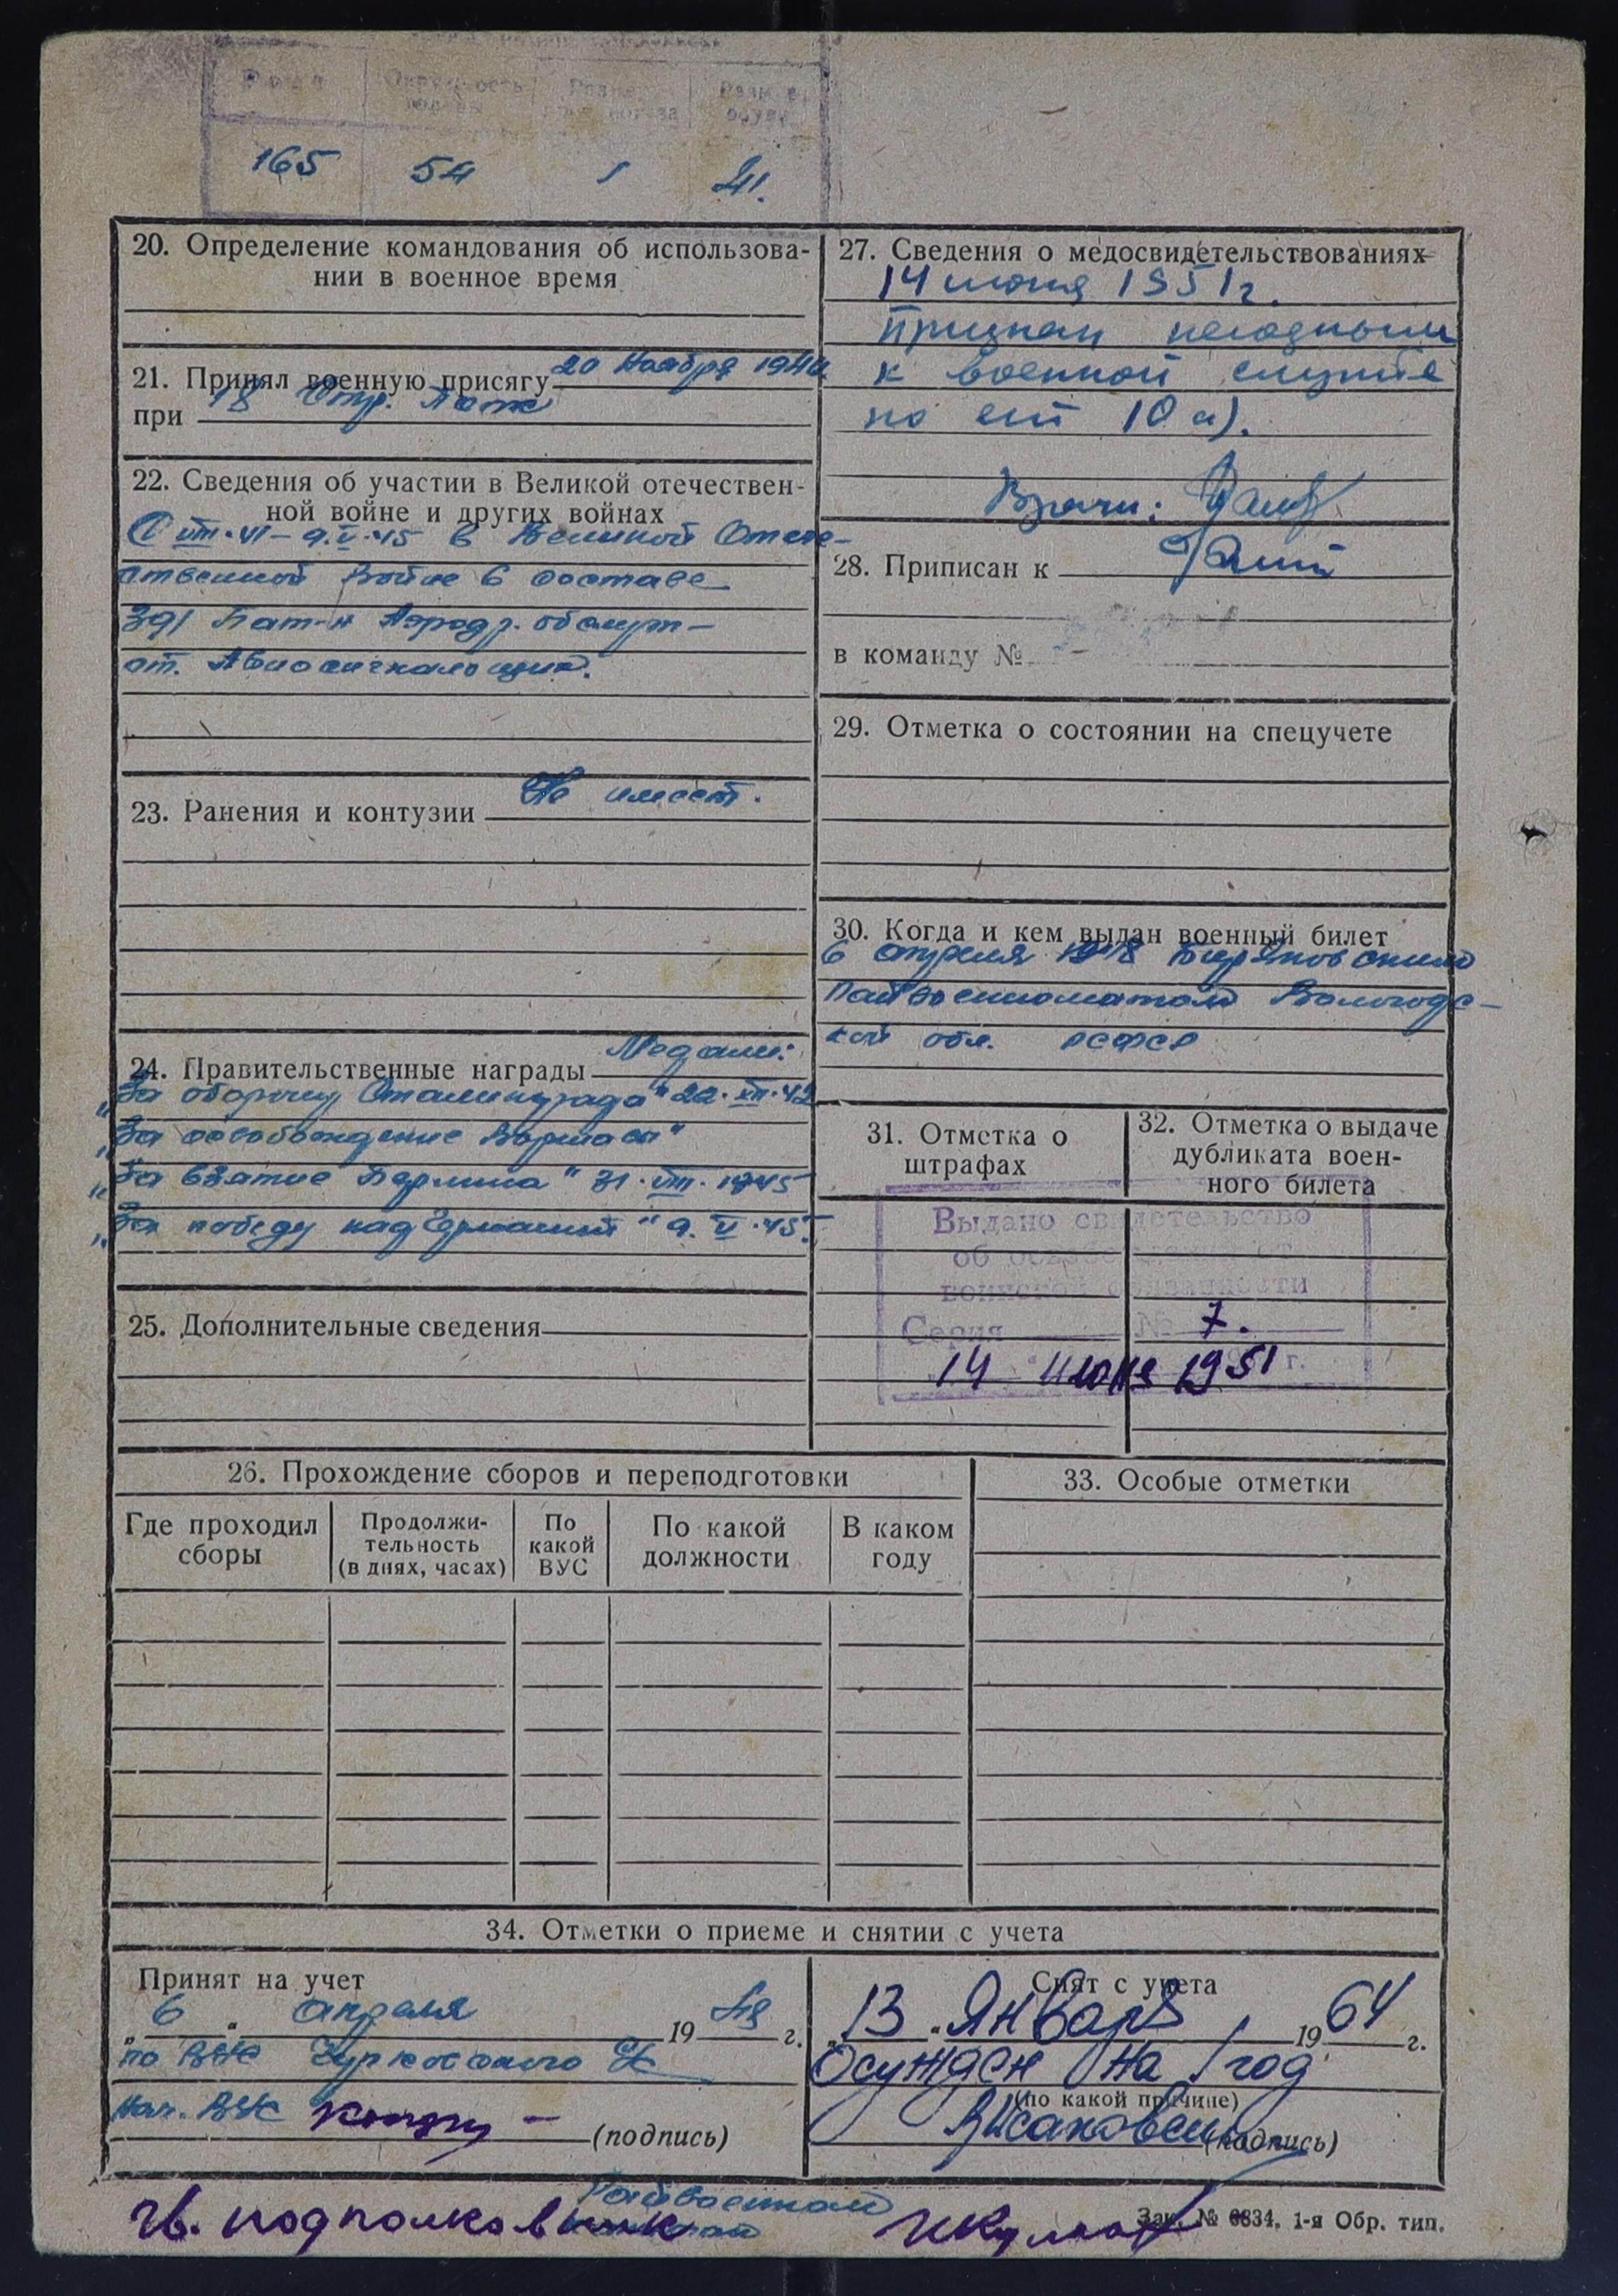 Рост Окружность головы Размер противогаза Размер обуви
165 54 1 41.
20. Определение командования об использова-
нии в военное время
21. Принял военную присягу 20 Ноября 1940
при 18 Стр. Полк
22. Сведения об участии в Великой отечествен-
ной войне и других войнах
С VIII·41 – 9.V·45 в Великой Отече-
ственной Войне в составе
391 Бат-н Аэродр. обслуж-
ст. Авиосигнальщик.
23. Ранения и контузии Не имеет.
24. Правительственные награды Медали:
„За оборону Сталинграда" 22·XII·42
„За освобождение Варшавы"
„За взятие Берлина" 31·VIII·1945
„За победу над Германией" 9.V·45г.
25. Дополнительные сведения
27. Сведения о медосвидетельствованиях
14 июня 1951г.
Признан негодным
к военной службе
по ст 10 а).
Врачи:
28. Приписан к
в команду №
29. Отметка о состоянии на спецучете
30. Когда и кем выдан военный билет
6 апреля 1948 Биряковским
Райвоенкоматом Вологодс-
кой обл. РСФСР
31. Отметка о
штрафах
32. Отметка о выдаче
дубликата воен-
ного билета
Выдано свидетельство
об освобождении от
воинской обязанности
Серия № 7.
14 июня 1951 г.
26. Прохождение сборов и переподготовки
Где проходил
сборы
Продолжи-
тельность
(в днях, часах)
По
какой
ВУС
По какой
должности
В каком
году
33. Особые отметки
34. Отметки о приеме и снятии с учета
Принят на учет
„ 6 " апреля 19 48 г.
по ВУС
Нач. ВУС
(подпись)
Снят с учета
„ 13 " Января 19 64 г.
Осужден на 1 год
(по какой причине)
(подпись)
Райвоенком
Гв. подполковник
Зак. № 6834. 1-я Обр. тип.